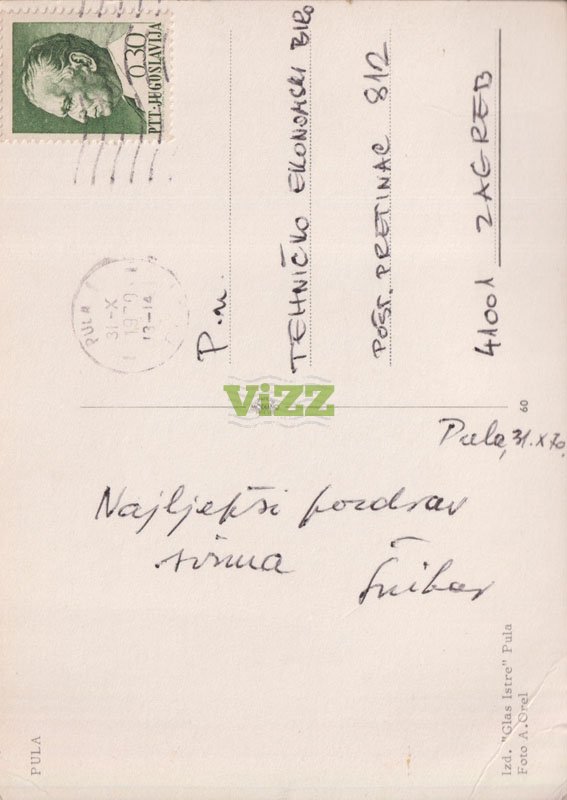 0.30
PTT-JUGOSLAVIJA
PULA
31-X
1970
13-14
P.n.
TEHNIČKO EKONOMSKI BIRO
POŠT. PRETINAC 812
41001 ZAGREB
ViZZ
60
Pula, 31.X 70.
Najljepši pozdrav
svima
PULA
Izd. "Glas Istre" Pula
Foto A. Orel